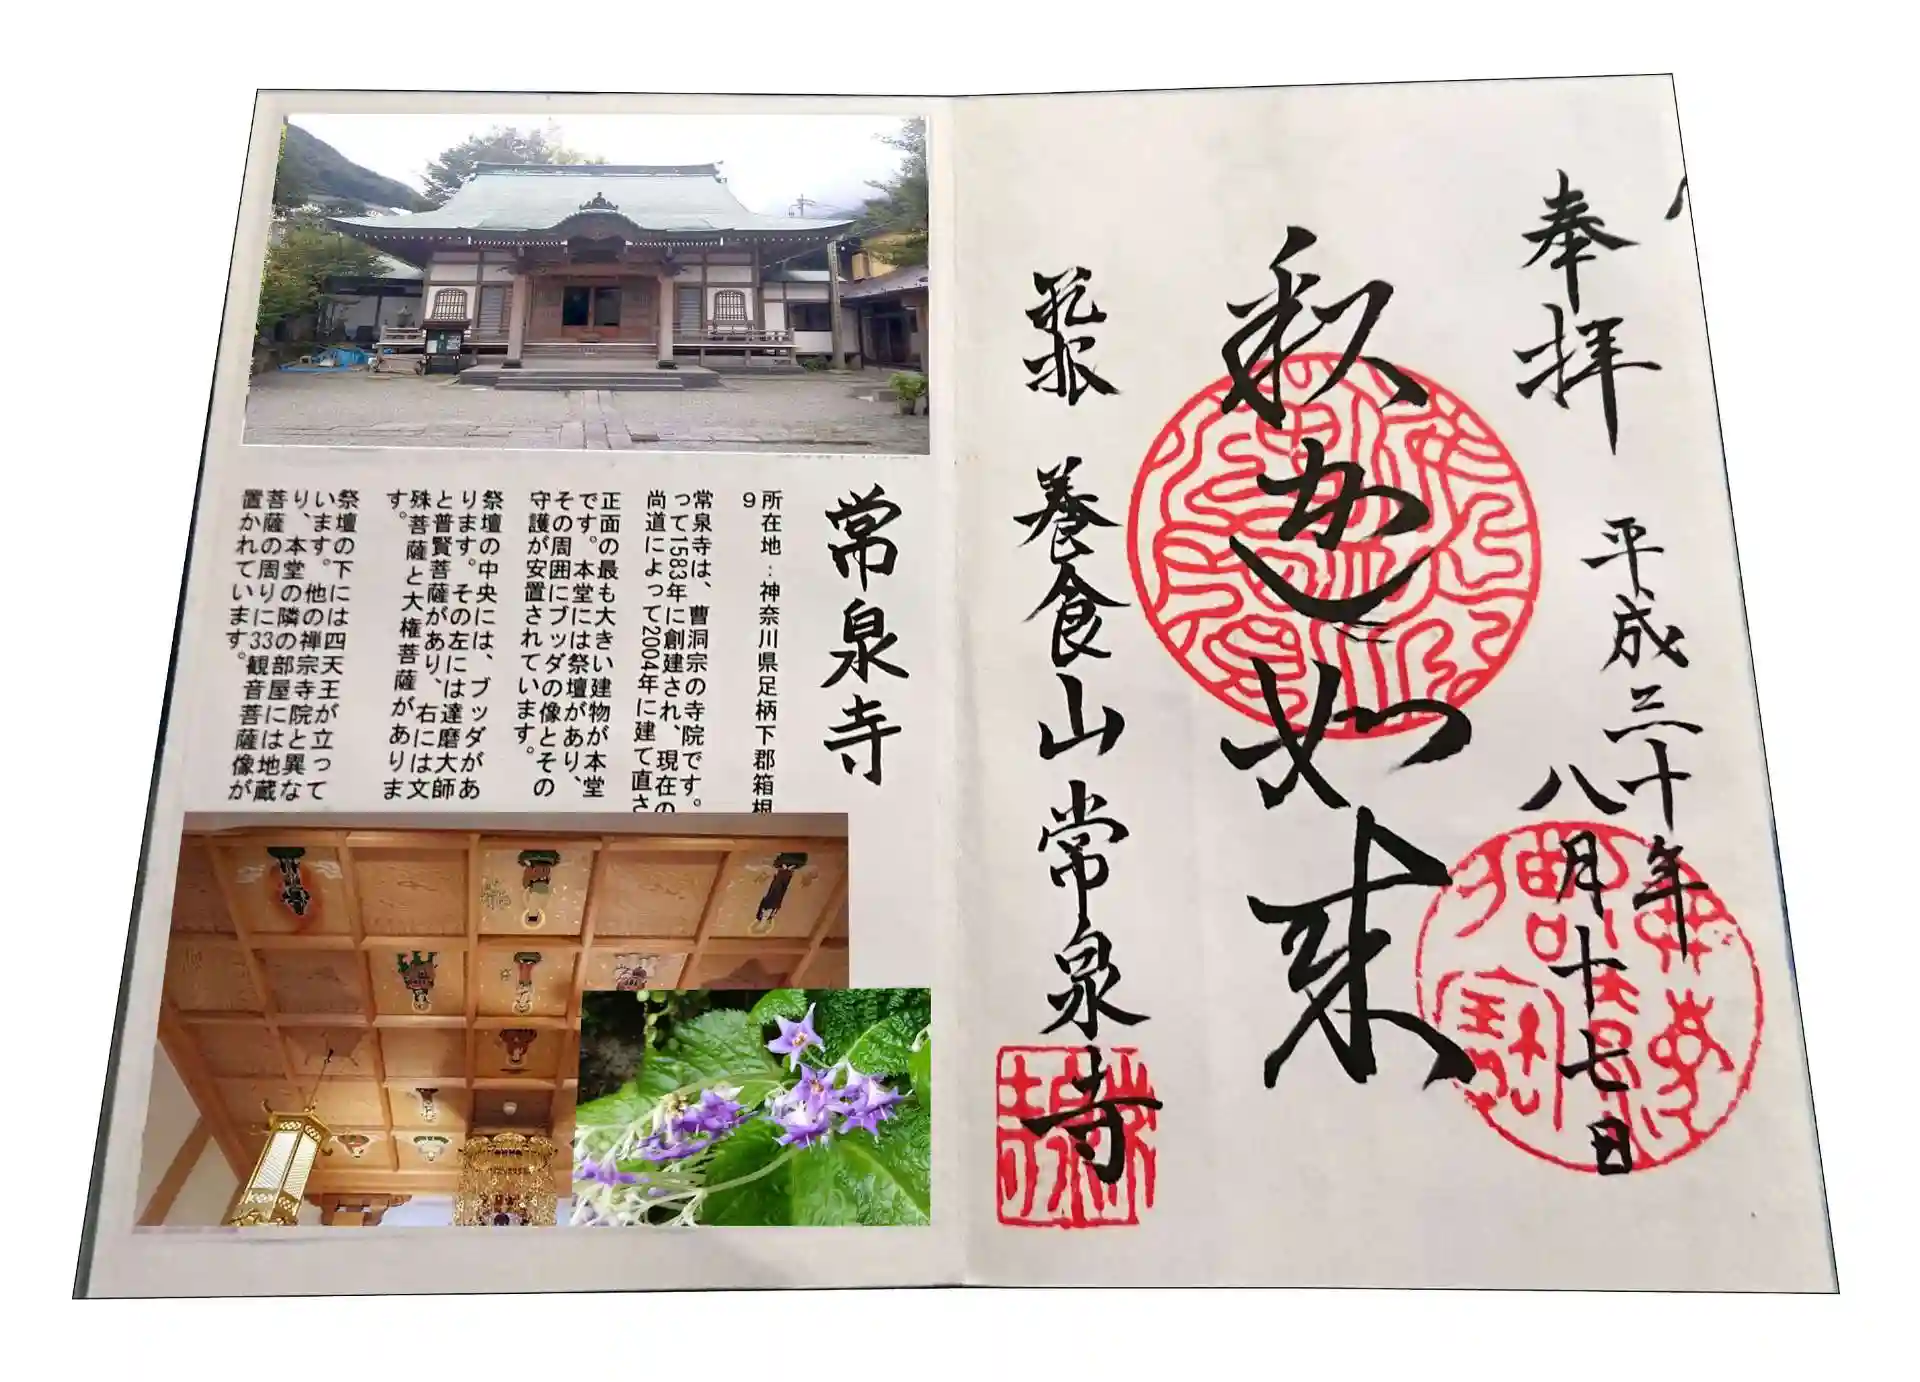 奉拝
平成三十年
八月十七日
釈迦如来
箱根 養食山常泉寺
常泉寺
所在地：神奈川県足柄下郡箱根
9
常泉寺は、曹洞宗の寺院です。
って1583年に創建され、現在の
尚道によって2004年に建て直さ
正面の最も大きい建物が本堂
です。本堂には祭壇があり、
その周囲にブッダの像とその
守護が安置されています。
祭壇の中央には、ブッダがあ
ります。その左には達磨大師
と普賢菩薩があり、右には文
殊菩薩と大権菩薩がありま
す。
祭壇の下には四天王が立って
います。他の禅宗寺院と異な
り、本堂の隣の部屋には地蔵
菩薩の周りに33観音菩薩像が
置かれています。